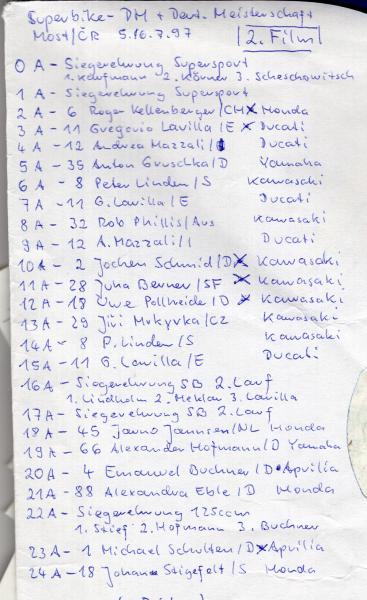 Superbike - DM + Deut. Meisterschaft
Most/ČR 5.+6.7.97 2. Film
0 A - Siegerehrung Supersport
1. Kaufmann 2. Körner 3. Scheschowitsch
1 A - Siegerehrung Supersport
2 A - 6 Roger Kellenberger/CH Honda
3 A - 11 Gregorio Lavilla/E Ducati
4 A - 12 Andrea Mazzali/I Ducati
5 A - 35 Anton Gruschka/D Yamaha
6 A - 8 Peter Linden/S Kawasaki
7 A - 11 G. Lavilla/E Ducati
8 A - 32 Rob Phillis/Aus Kawasaki
9 A - 12 A. Mazzali/I Ducati
10A - 2 Jochen Schmid/D Kawasaki
11A - 28 Juha Berner/SF Kawasaki
12A - 18 Uwe Pollheide/D Kawasaki
13A - 29 Jiři Mrkyvka/CZ Kawasaki
14A - 8 P. Linden/S Kawasaki
15A - 11 G. Lavilla/E Ducati
16A - Siegerehrung SB 2. Lauf
1. Lindholm 2. Meklau 3. Lavilla
17A - Siegerehrung SB 2. Lauf
18A - 45 Jarno Janssen/NL Honda
19A - 66 Alexander Hofmann/D Yamaha
20A - 4 Emanuel Buchner/D Aprilia
21A - 88 Alexandra Eble/D Honda
22A - Siegerehrung 125ccm
1. Stief 2. Hofmann 3. Buchner
23A - 1 Michael Schulten/D Aprilia
24A - 18 Johan Stigefelt/S Honda